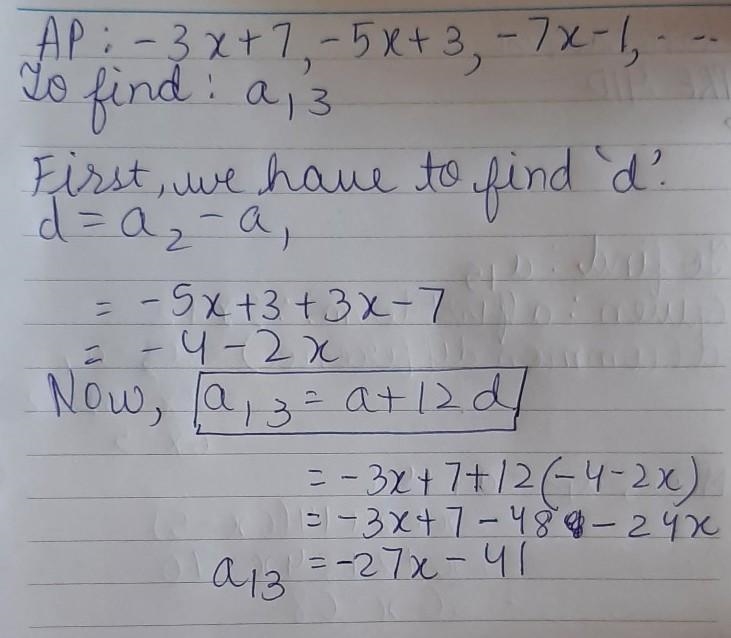 AP: -3x+7, -5x+3, -7x-1, ....
To find: a₁₃
First, we have to find 'd'.
d = a₂ - a₁
= -5x+3+3x-7
= -4-2x
Now, a₁₃ = a+12d
= -3x+7+12(-4-2x)
= -3x+7-48-24x
a₁₃ = -27x-41